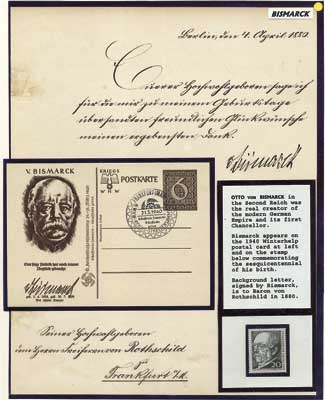 BISMARCK
Berlin, den 4. April 1880.
Euerer Hochwohlgeboren sage ich
für die mir zu meinem Geburtstage
übersandten freundlichen Glückwünsche
meinen ergebensten Dank.
v Bismarck
V. BISMARCK
KRIEGS
WHW
POSTKARTE
6
31.3.1940
v Bismarck
OTTO von BISMARCK in
the Second Reich was
the real creator of
the modern German
Empire and its first
Chancellor.
Bismarck appears on
the 1940 Winterhelp
postal card at left
and on the stamp
below commemorating
the sesquicentennial
of his birth.
Background letter,
signed by Bismarck,
is to Baron von
Rothschild in 1880.
Seiner Hochwohlgeboren
dem Herrn Freiherrn von Rothschild
zu
Frankfurt
20